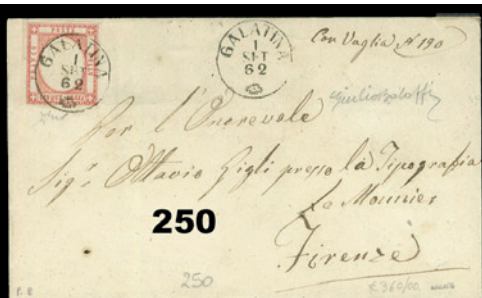 POSTE
GALATINA
1
SET
62
GALATINA
1
SET
62
Con Vaglia N 190
Per l'Onorevole
Sigr Ottavio Gigli presso la Tipografia
Le Monnier
Firenze
250
250